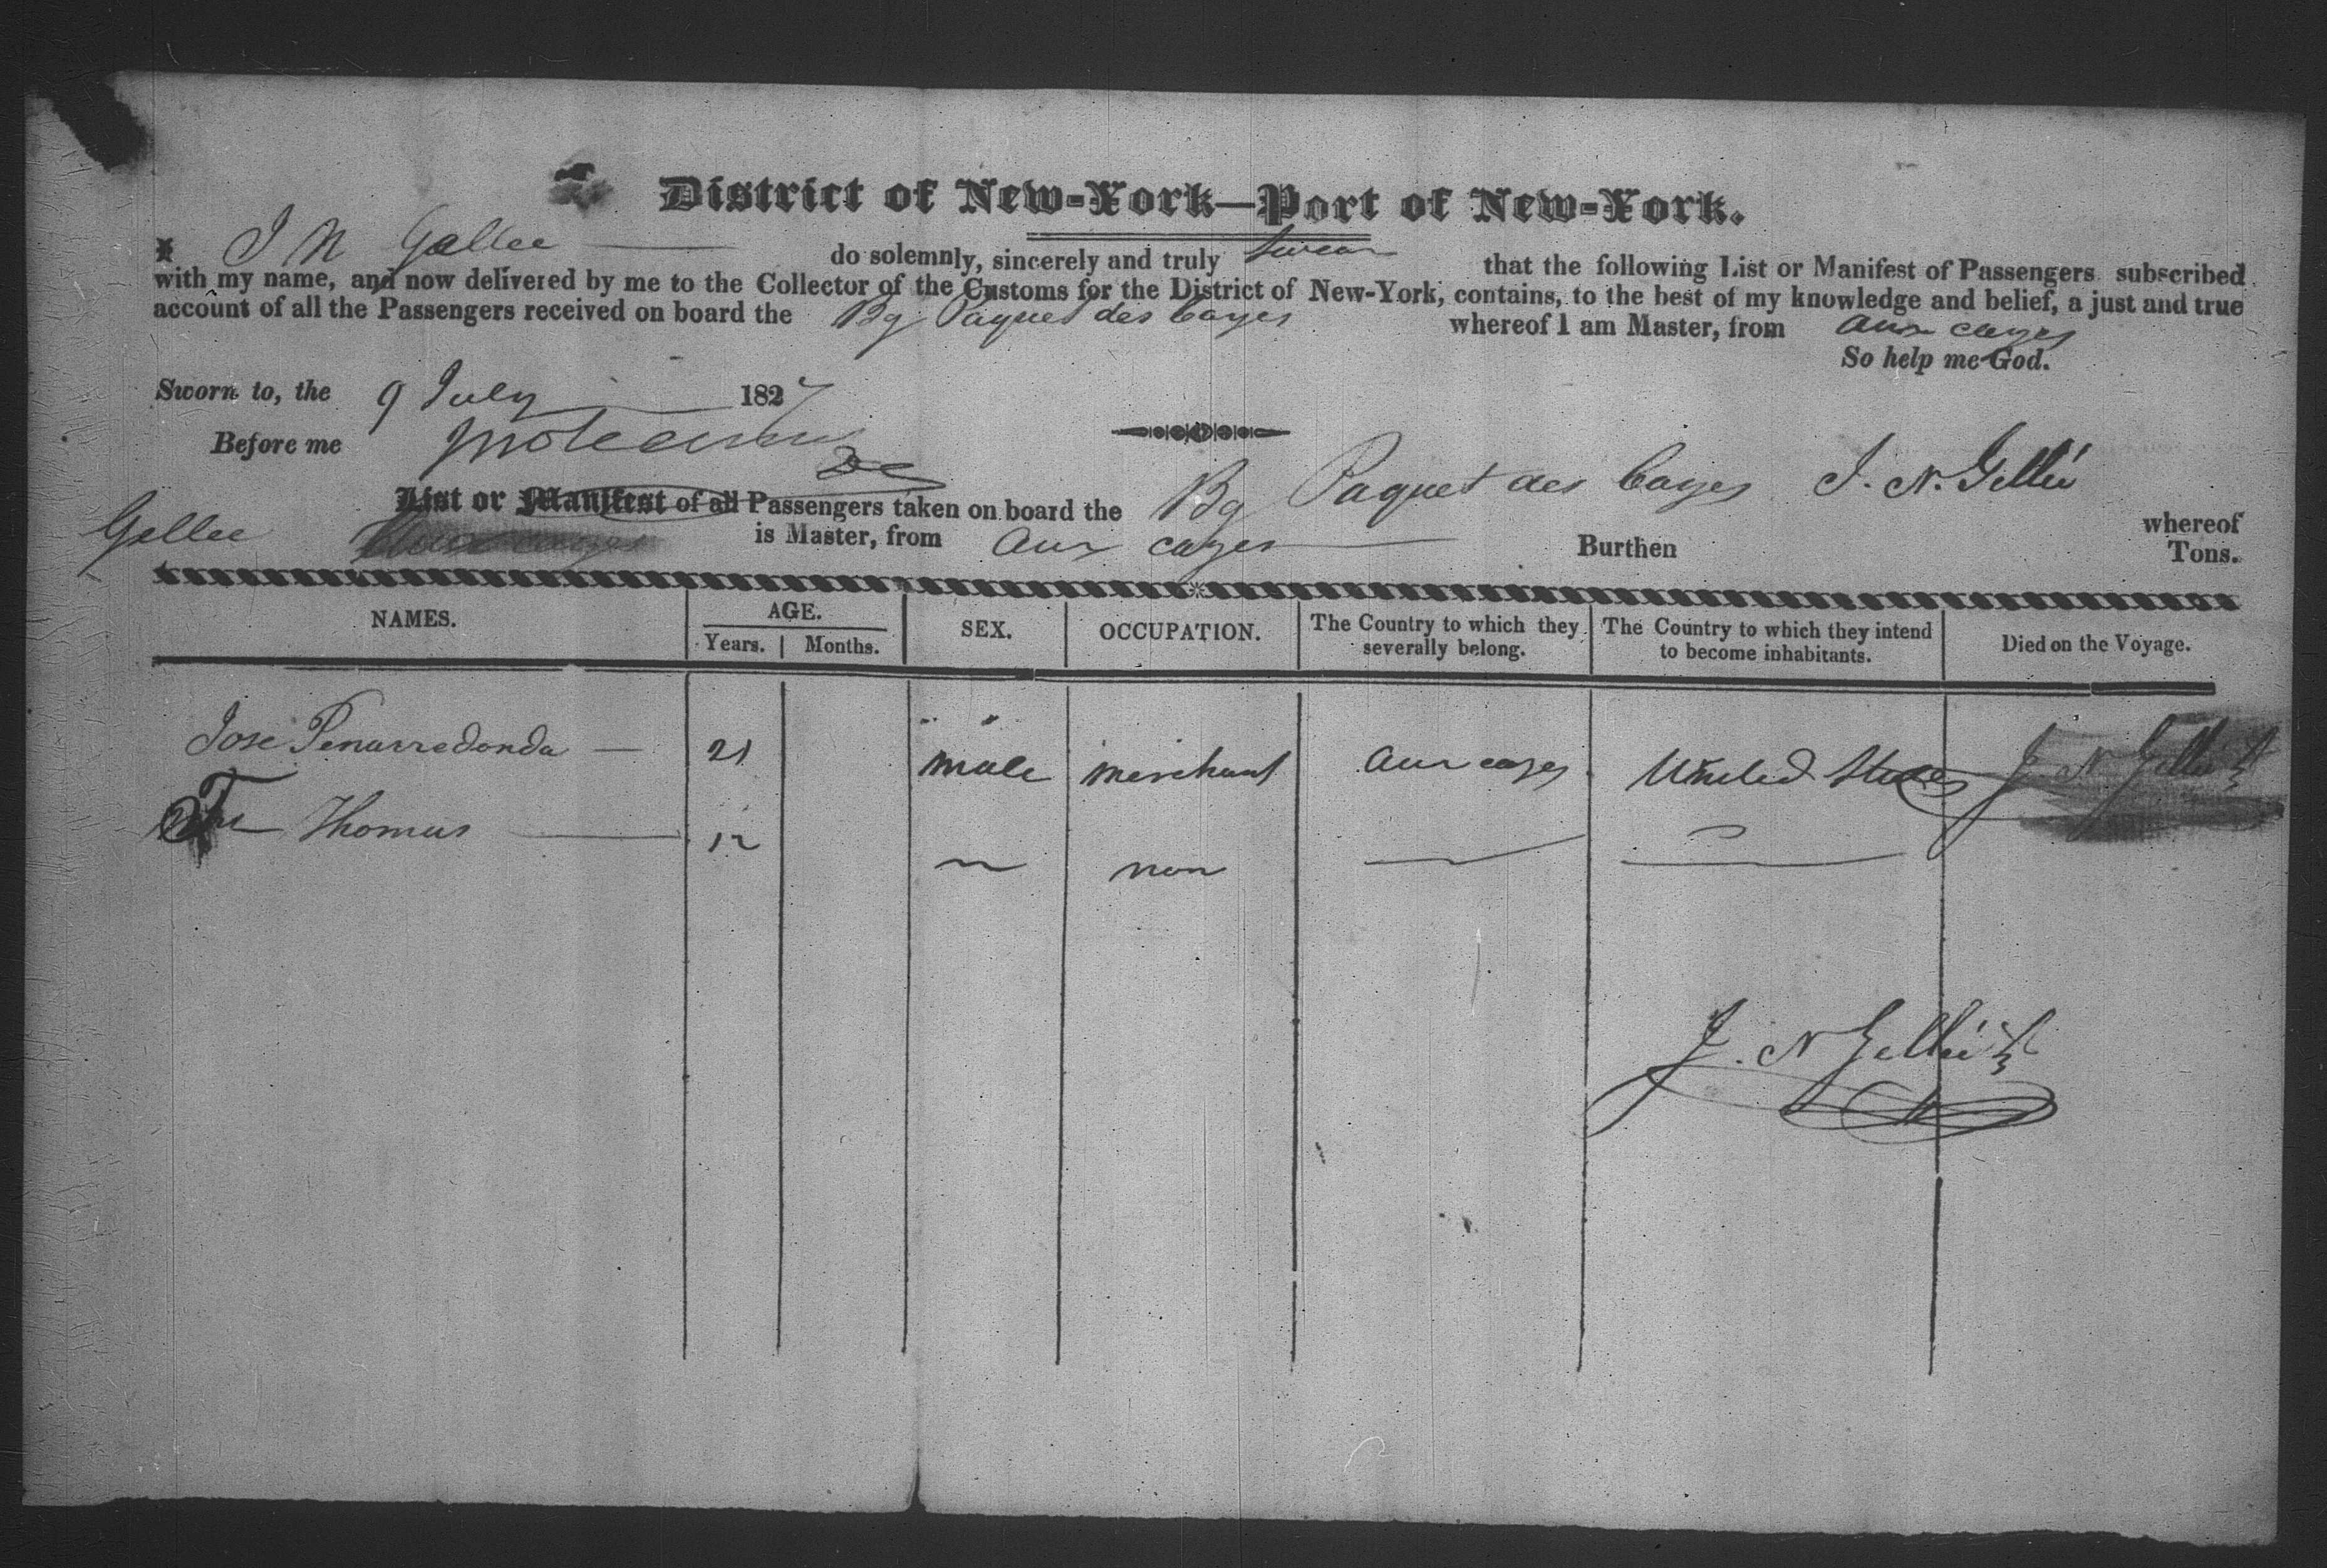 District of New-York—Port of New-York.
I J N Gellee do solemnly, sincerely and truly swear that the following List or Manifest of Passengers subscribed
with my name, and now delivered by me to the Collector of the Customs for the District of New-York, contains, to the best of my knowledge and belief, a just and true
account of all the Passengers received on board the Bg Paquet des Cayes whereof I am Master, from aux cayes
So help me God.
Sworn to, the 9 July 1827
Before me
List or Manifest of all Passengers taken on board the Bg Paquet des Cayes J. N. Gellée whereof
Gellee is Master, from aux cayes Burthen Tons.
NAMES. AGE. SEX. OCCUPATION. The Country to which they severally belong. The Country to which they intend to become inhabitants. Died on the Voyage.
Years. Months.
Jose Penarredonda — 21 male merchant aux cayes United States J. N Gellée
Thomas — 12 non
J. N Gellée